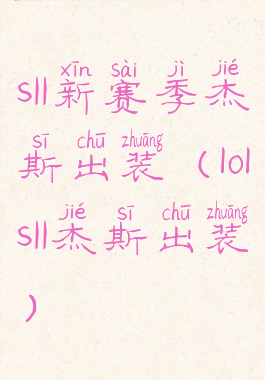 xīn sài jì jié
sll新赛季杰
sī chū zhuāng
斯出装（lol
jié sī chū zhuāng
sll杰斯出装
）